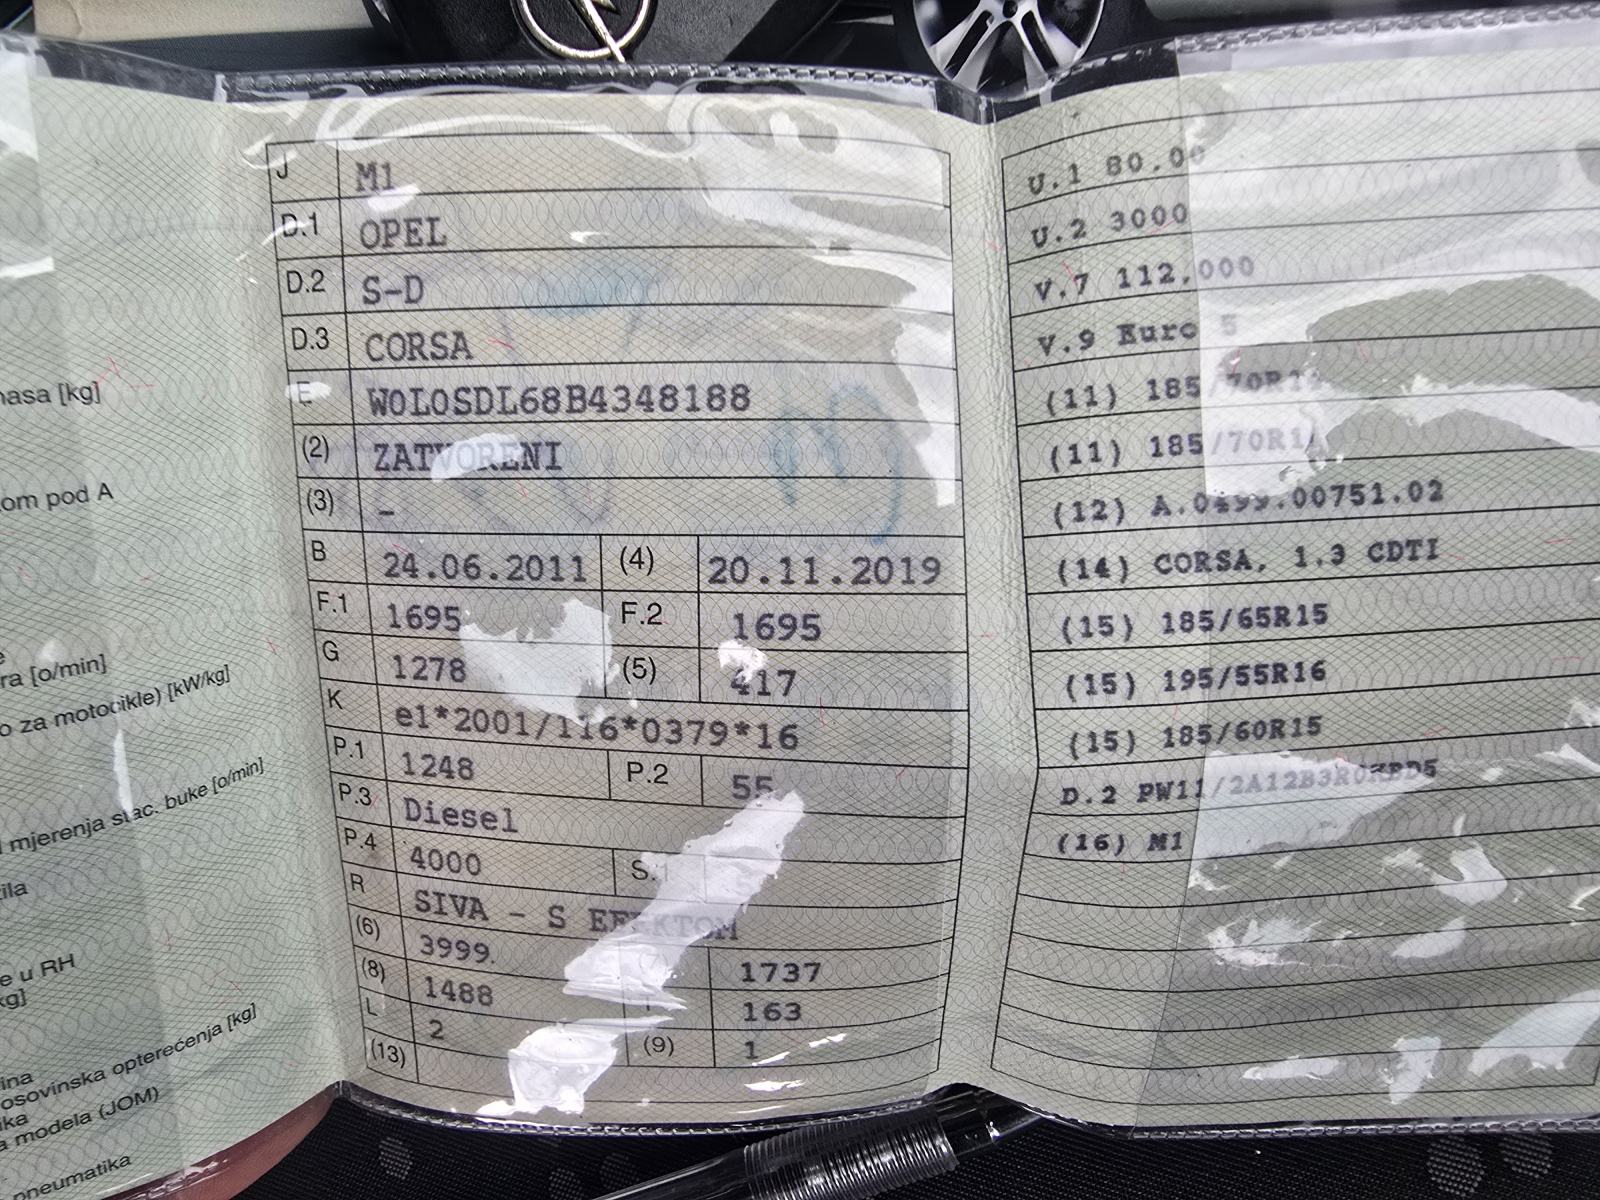 masa [kg]
om pod A
ra [o/min]
o za motocikle) [kW/kg]
mjerenja stac. buke [o/min]
ila
e u RH
kg]
ina
osovinska opterećenja [kg]
ika
a modela (JOM)
pneumatika
J M1
D.1 OPEL
D.2 S-D
D.3 CORSA
E W0L0SDL68B4348188
(2) ZATVORENI
(3) –
B 24.06.2011 (4) 20.11.2019
F.1 1695 F.2 1695
G 1278 (5) 417
K e1*2001/116*0379*16
P.1 1248 P.2 55
P.3 Diesel
P.4 4000 S.1
R SIVA – S EFEKTOM
(6) 3999 1737
(8) 1488 163
L 2 (9) 1
(13)
U.1 80.00
U.2 3000
V.7 112.000
V.9 Euro 5
(11) 185/70R14
(11) 185/70R14
(12) A.0499.00751.02
(14) CORSA, 1.3 CDTI
(15) 185/65R15
(15) 195/55R16
(15) 185/60R15
D.2
(16) M1